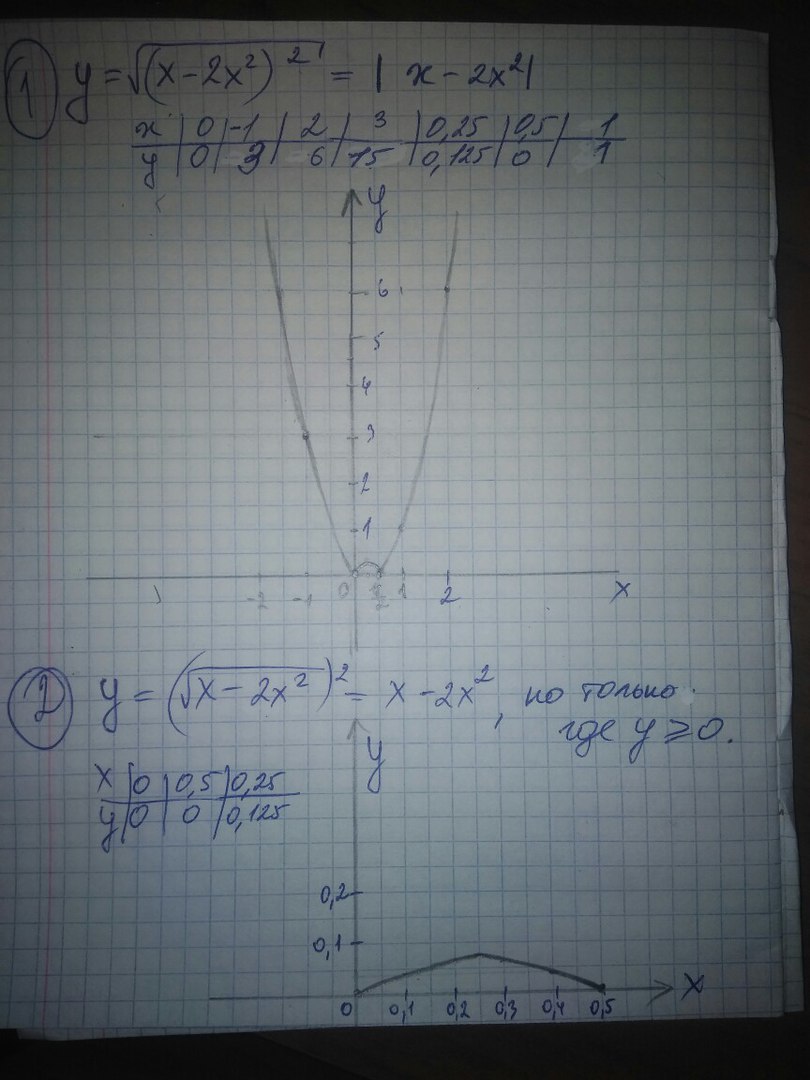 1 y = √(x - 2x²)² = | x - 2x² |
x | 0 | -1 | 2 | 3 | 0,25 | 0,5 | 1
y | 0 | 3 | 6 | 15 | 0,125 | 0 | 1
y
6
5
4
3
2
1
-2 -1 0 1/2 1 2 x
2 y = (√x - 2x²)² = x - 2x², но только
где y ≥ 0.
y
x | 0 | 0,5 | 0,25
y | 0 | 0 | 0,125
0,2
0,1
x
0 0,1 0,2 0,3 0,4 0,5